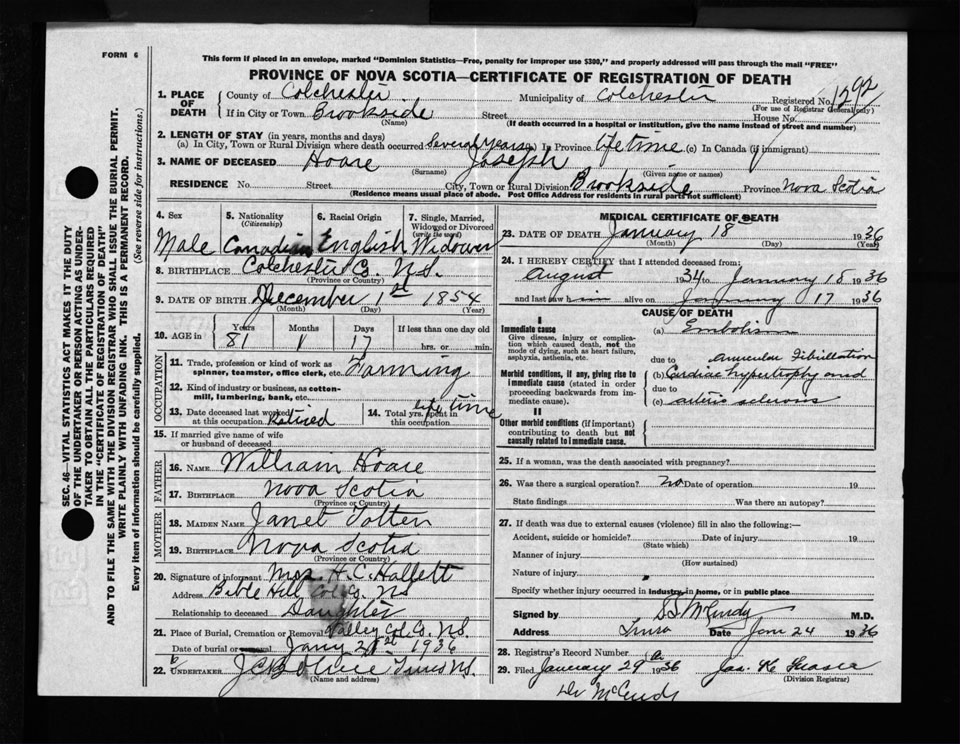 FORM 6
This form if placed in an envelope, marked "Dominion Statistics—Free, penalty for improper use $300," and properly addressed will pass through the mail "FREE"
PROVINCE OF NOVA SCOTIA—CERTIFICATE OF REGISTRATION OF DEATH
1. PLACE OF DEATH
County of Colchester Municipality of Colchester Registered No. 1592
(For use of Registrar General only)
If in City or Town Brookside Street House No.
(Name) (If death occurred in a hospital or institution, give the name instead of street and number)
2. LENGTH OF STAY (in years, months and days)
(a) In City, Town or Rural Division where death occurred Several Years (b) In Province Lifetime (c) In Canada (if immigrant)
3. NAME OF DECEASED Hoare Joseph
(Surname) (Given name or names)
RESIDENCE No. Street City, Town or Rural Division Brookside Province Nova Scotia
(Residence means usual place of abode. Post Office Address for residents in rural parts not sufficient)
4. Sex Male
5. Nationality (Citizenship) Canadian
6. Racial Origin English
7. Single, Married, Widowed or Divorced (write the word) Widower
8. BIRTHPLACE Colchester Co. N.S.
(Province or Country)
9. DATE OF BIRTH December 1st 1854
(Month) (Day) (Year)
10. AGE in Years Months Days If less than one day old
81 1 17 hrs. or min.
OCCUPATION
11. Trade, profession or kind of work as spinner, teamster, office clerk, etc. Farming
12. Kind of industry or business, as cotton-mill, lumbering, bank, etc.
13. Date deceased last worked at this occupation Retired
14. Total yrs. spent in this occupation life time
15. If married give name of wife or husband of deceased
FATHER
16. NAME William Hoare
17. BIRTHPLACE Nova Scotia
(Province or Country)
MOTHER
18. MAIDEN NAME Janet Totten
19. BIRTHPLACE Nova Scotia
(Province or Country)
20. Signature of informant Mrs. H. C. Hallett
Address Bible Hill Col. Co. NS
Relationship to deceased Daughter
21. Place of Burial, Cremation or Removal Valley Col. Co. N.S.
Date of burial or removal Jany 21st 1936
22. UNDERTAKER Truro N.S.
(Name and address)
MEDICAL CERTIFICATE OF DEATH
23. DATE OF DEATH January 18th 1936
(Month) (Day) (Year)
24. I HEREBY CERTIFY that I attended deceased from:
August 1934 to January 18 1936
and last saw him alive on January 17 1936
CAUSE OF DEATH
I
Immediate cause
Give disease, injury or complication which caused death, not the mode of dying, such as heart failure, asphyxia, asthenia, etc.
(a) Embolism
due to auricular fibrillation
Morbid conditions, if any, giving rise to immediate cause (stated in order proceeding backwards from immediate cause).
(b) Cardiac hypertrophy and
due to
(c) arterio sclerosis
II
Other morbid conditions (if important) contributing to death but not causally related to immediate cause.
25. If a woman, was the death associated with pregnancy?
26. Was there a surgical operation? no Date of operation 19
State findings Was there an autopsy?
27. If death was due to external causes (violence) fill in also the following:—
Accident, suicide or homicide? Date of injury 19
(State which)
Manner of injury
(How sustained)
Nature of injury
Specify whether injury occurred in industry, in home, or in public place
Signed by McCurdy M.D.
Address Truro Date Jan 24 1936
28. Registrar's Record Number
29. Filed January 29 1936 Jas. K. Fraser
(Division Registrar)
Dr McCurdy
SEC. 46—VITAL STATISTICS ACT MAKES IT THE DUTY
OF THE UNDERTAKER OR PERSON ACTING AS UNDER-
TAKER TO OBTAIN ALL THE PARTICULARS REQUIRED
IN THE "CERTIFICATE OF REGISTRATION OF DEATH"
AND TO FILE THE SAME WITH THE DIVISION REGISTRAR WHO SHALL ISSUE THE BURIAL PERMIT.
WRITE PLAINLY WITH UNFADING INK. THIS IS A PERMANENT RECORD.
Every item of information should be carefully supplied. (See reverse side for instructions.)